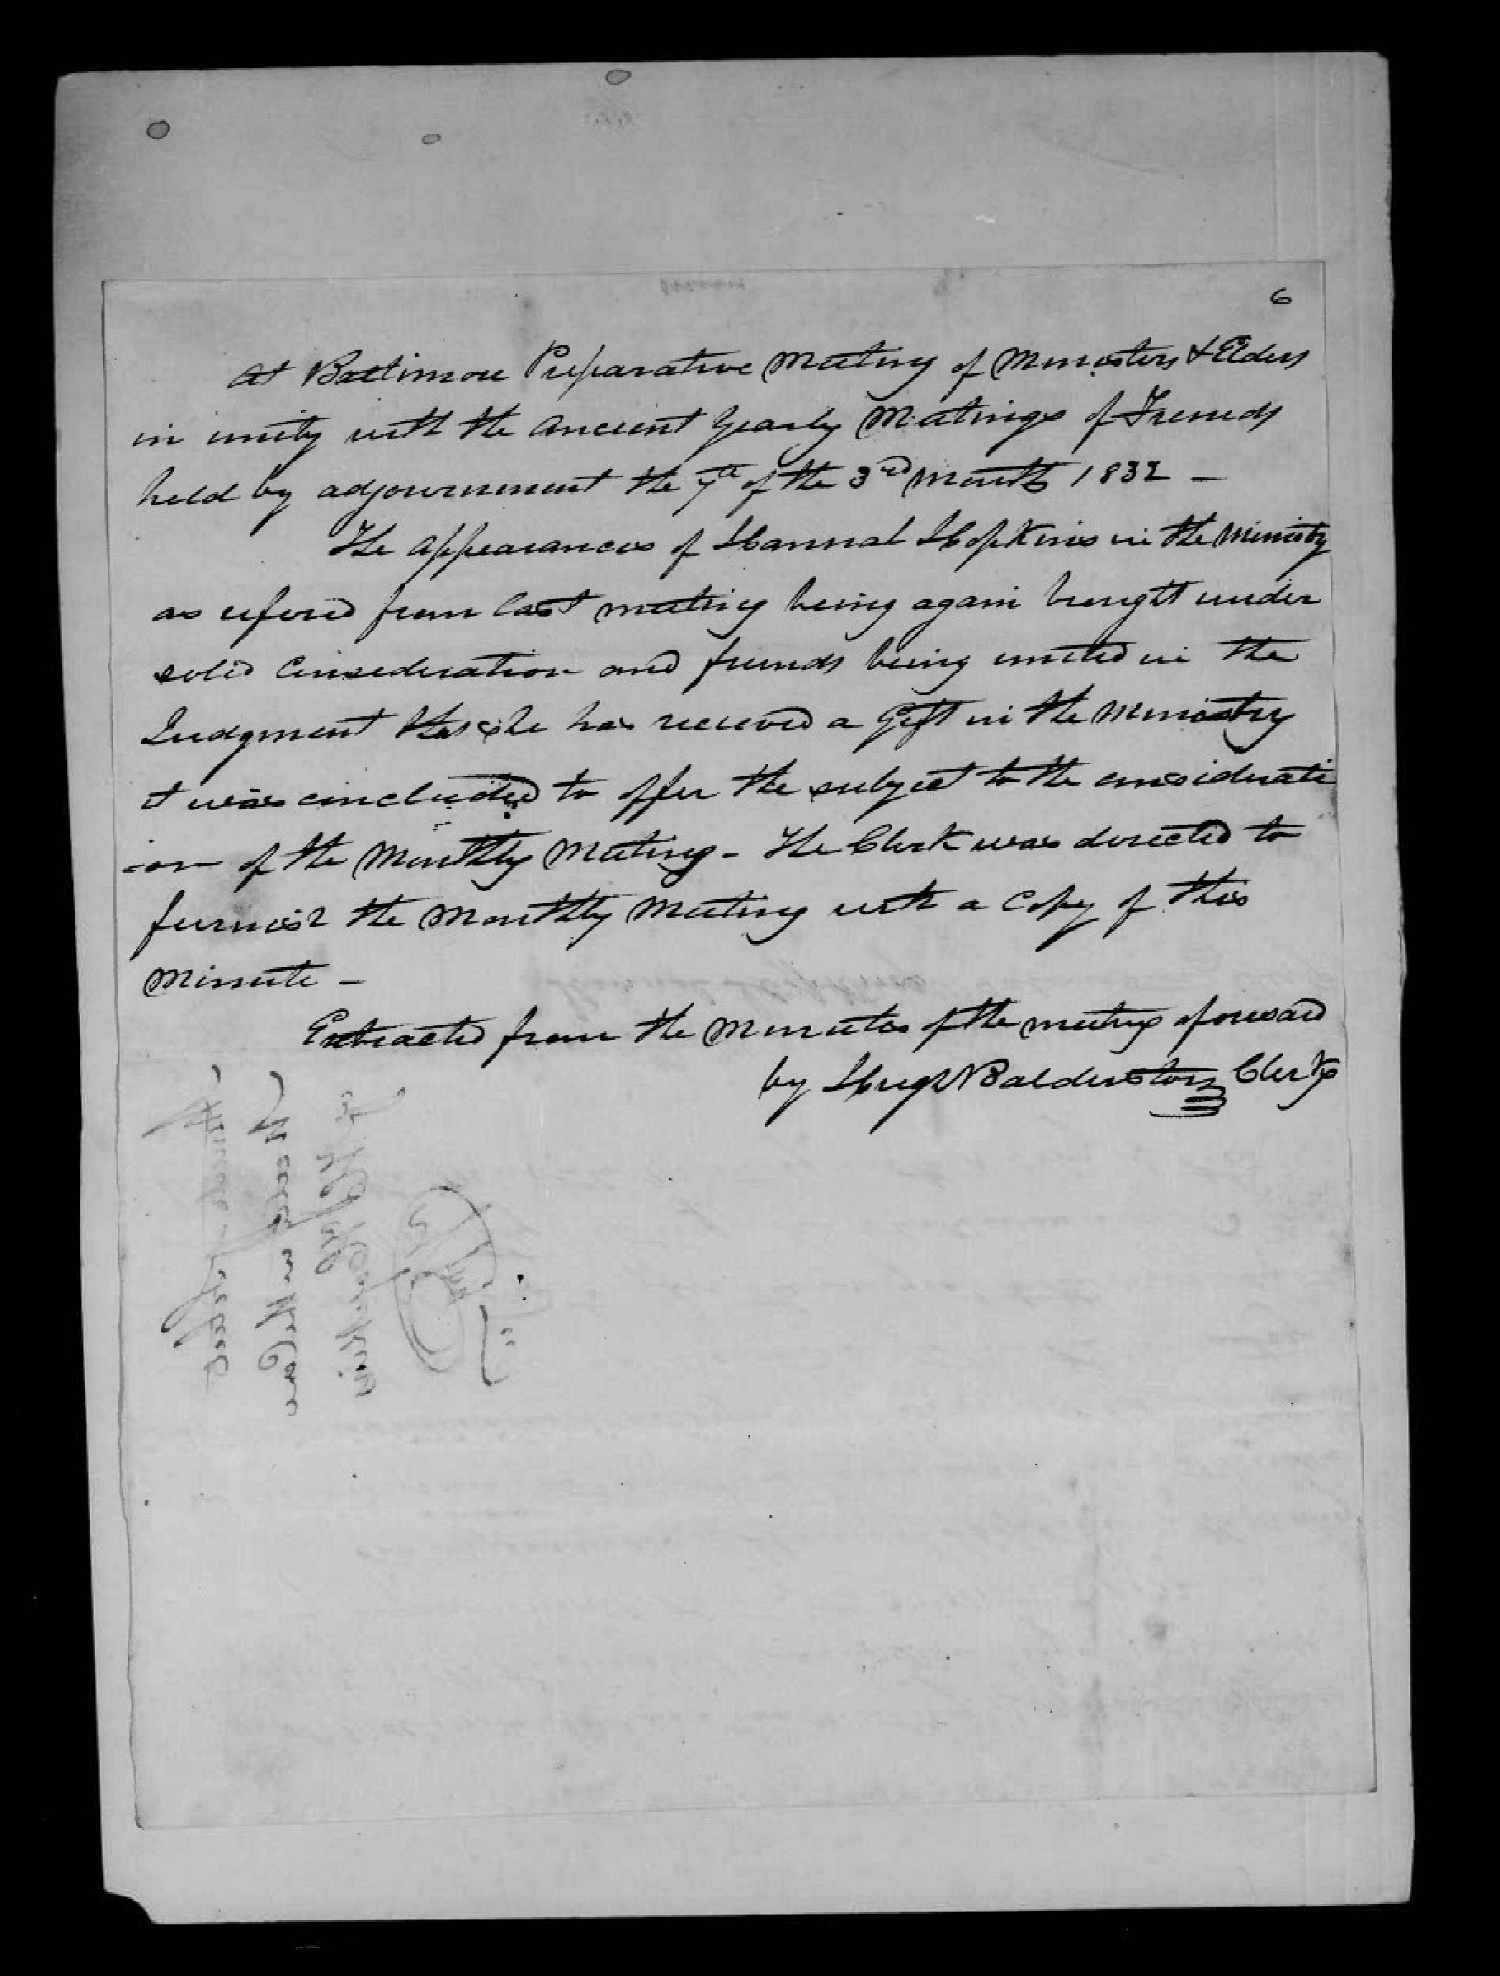 6
At Baltimore Preparative Meeting of Ministers & Elders
in unity with the ancient Yearly Meetings of Friends
held by adjournment the 7th of the 3rd month 1832 -
The appearances of Hannah Hopkins in the Ministry
as refered from last meeting being again brought under
solid Consideration and friends being united in the
Judgment that she has received a Gift in the Ministry
it was concluded to offer the subject to the considerati
-on of the Monthly Meeting - The Clerk was directed to
furnish the Monthly Meeting with a Copy of this
Minute -
Extracted from the Minutes of the meeting aforesaid
by Hugh Balderston Clerk